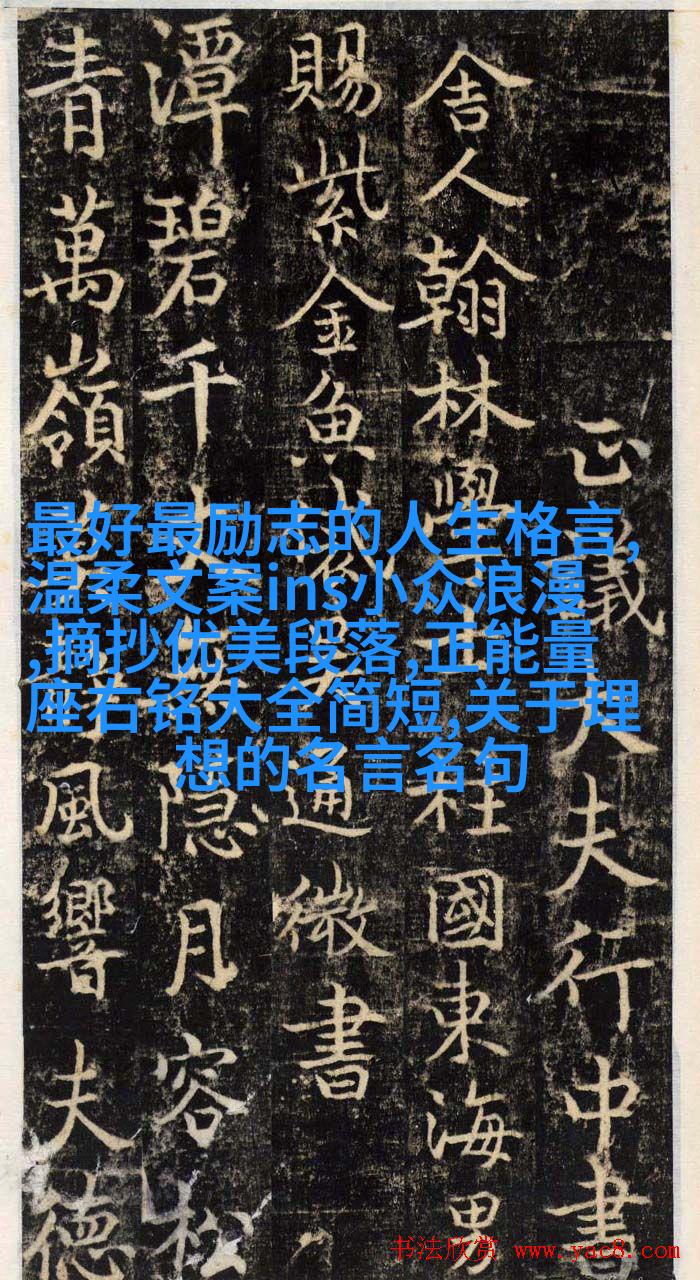 正議大夫行中書
舍人翰林學柱國東海男
賜紫金魚袋通微書
潭碧千隱月容松
青萬嶺風響夫德
最好最励志的人生格言,
温柔文案ins小众浪漫
,摘抄优美段落,正能量
座右铭大全简短,关于理
想的名言名句
书法欣赏 www.yac8.com